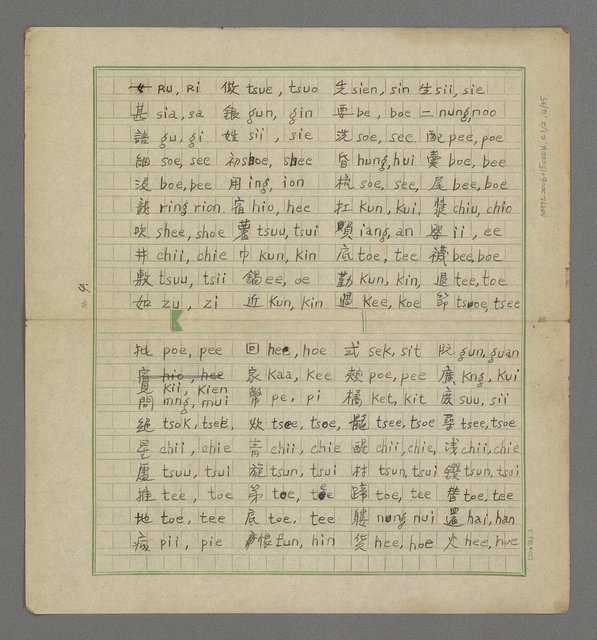 女 RU, Ri 做 tsue, tsuo 先 sien, sin 生 sii, sie
甚 sia, sa 銀 gun, gin 要 be, boe 二 nung, noo
語 gu, gi 姓 sii, sie 洗 soe, see 配 pee, poe
細 soe, see 初 shoe, shee 昏 hung, hui 賣 boe, bee
沒 boe, bee 用 ing, ion 梳 soe, see, 尾 bee, boe
龍 ring rion 宿 hio, hee 扛 kun, kui, 漿 chiu, chio
吹 shee, shoe 薯 tsuu, tsui iang, an ii, ee
井 chii, chie 巾 kun, kin 底 toe, tee 襪 bee, boe
敷 tsuu, tsii 鍋 ee, oe 勤 kun, kin, 退 tee, toe
如 zu, zi 近 kun, kin 過 kee, koe 節 tsoe, tsee
No. 9.
批 poe, pee 回 hee, hoe 式 sek, sit 阮 gun, guan
宿 hio, hee 家 kaa, kee 頰 poe, pee 廣 kng, kui
見 kii, kien
問 mng, mui 幣 pe, pi 橘 ket, kit 度 suu, sii
絕 tsok, tsek, 炊 tsee, tsoe, 髓 tsee, tsoe 尋 tsee, tsoe
星 chii, chie 青 chii, chie 醒 chii, chie, 淺 chii, chie
tsuu, tsui 旋 tsun, tsui 村 tsun, tsui 鑽 tsun, tsui
推 tee, toe 弟 toe, tee 蹄 toe, tee 替 toe, tee
地 toe, tee 底 toe, tee 軁 nung nui 還 hai, han
病 pii, pie 恨 hun, hin 貨 hee, hoe 火 hee, hoe